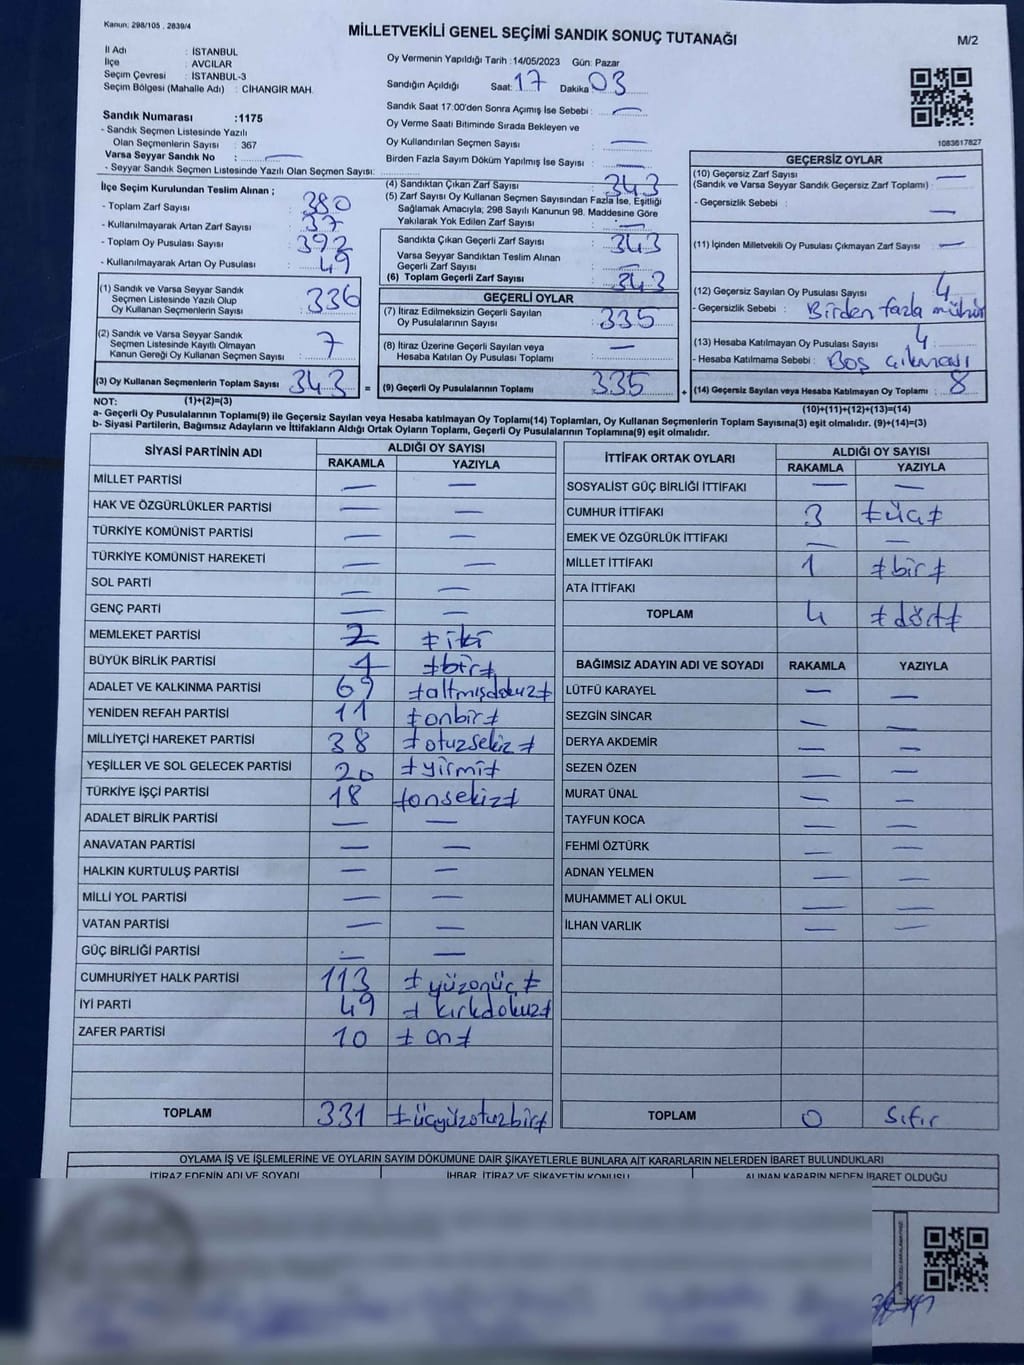 Kanun: 298/105 , 2839/4
MİLLETVEKİLİ GENEL SEÇİMİ SANDIK SONUÇ TUTANAĞI
M/2
İl Adı : İSTANBUL
İlçe : AVCILAR
Seçim Çevresi : İSTANBUL-3
Seçim Bölgesi (Mahalle Adı) : CİHANGİR MAH.
Oy Vermenin Yapıldığı Tarih : 14/05/2023 Gün: Pazar
Sandığın Açıldığı Saat: 17 Dakika 03
Sandık Saat 17:00'den Sonra Açımış İse Sebebi : —
Oy Verme Saati Bitiminde Sırada Bekleyen ve
Oy Kullandırılan Seçmen Sayısı : —
Birden Fazla Sayım Döküm Yapılmış İse Sayısı : —
1083617827
Sandık Numarası :1175
- Sandık Seçmen Listesinde Yazılı
Olan Seçmenlerin Sayısı : 367
Varsa Seyyar Sandık No : —
- Seyyar Sandık Seçmen Listesinde Yazılı Olan Seçmen Sayısı:
İlçe Seçim Kurulundan Teslim Alınan ;
- Toplam Zarf Sayısı : 380
- Kullanılmayarak Artan Zarf Sayısı : 37
- Toplam Oy Pusulası Sayısı : 392
- Kullanılmayarak Artan Oy Pusulası : 49
(1) Sandık ve Varsa Seyyar Sandık
Seçmen Listesinde Yazılı Olup
Oy Kullanan Seçmenlerin Sayısı : 336
(2) Sandık ve Varsa Seyyar Sandık
Seçmen Listesinde Kayıtlı Olmayan
Kanun Gereği Oy Kullanan Seçmen Sayısı : 7
(3) Oy Kullanan Seçmenlerin Toplam Sayısı : 343 =
(4) Sandıktan Çıkan Zarf Sayısı : 343
(5) Zarf Sayısı Oy Kullanan Seçmen Sayısından Fazla İse, Eşitliği
Sağlamak Amacıyla; 298 Sayılı Kanunun 98. Maddesine Göre
Yakılarak Yok Edilen Zarf Sayısı : —
Sandıkta Çıkan Geçerli Zarf Sayısı : 343
Varsa Seyyar Sandıktan Teslim Alınan
Geçerli Zarf Sayısı : —
(6) Toplam Geçerli Zarf Sayısı : 343
GEÇERLİ OYLAR
(7) İtiraz Edilmeksizin Geçerli Sayılan
Oy Pusulalarının Sayısı : 335
(8) İtiraz Üzerine Geçerli Sayılan veya
Hesaba Katılan Oy Pusulası Toplamı : —
(9) Geçerli Oy Pusulalarının Toplamı : 335 +
GEÇERSİZ OYLAR
(10) Geçersiz Zarf Sayısı : —
(Sandık ve Varsa Seyyar Sandık Geçersiz Zarf Toplamı)
- Geçersizlik Sebebi : —
(11) İçinden Milletvekili Oy Pusulası Çıkmayan Zarf Sayısı : —
(12) Geçersiz Sayılan Oy Pusulası Sayısı : 4
- Geçersizlik Sebebi : Birden fazla mühür
(13) Hesaba Katılmayan Oy Pusulası Sayısı : 4
- Hesaba Katılmama Sebebi : Boş çıkması
(14) Geçersiz Sayılan veya Hesaba Katılmayan Oy Toplamı : 8
NOT: (1)+(2)=(3)
(10)+(11)+(12)+(13)=(14)
a- Geçerli Oy Pusulalarının Toplamı(9) ile Geçersiz Sayılan veya Hesaba katılmayan Oy Toplamı(14) Toplamları, Oy Kullanan Seçmenlerin Toplam Sayısına(3) eşit olmalıdır. (9)+(14)=(3)
b- Siyasi Partilerin, Bağımsız Adayların ve İttifakların Aldığı Ortak Oyların Toplamı, Geçerli Oy Pusulalarının Toplamına(9) eşit olmalıdır.
SİYASİ PARTİNİN ADI ALDIĞI OY SAYISI
RAKAMLA YAZIYLA
MİLLET PARTİSİ — —
HAK VE ÖZGÜRLÜKLER PARTİSİ — —
TÜRKİYE KOMÜNİST PARTİSİ — —
TÜRKİYE KOMÜNİST HAREKETİ — —
SOL PARTİ — —
GENÇ PARTİ — —
MEMLEKET PARTİSİ 2 ≠iki
BÜYÜK BİRLİK PARTİSİ 1 ≠bir≠
ADALET VE KALKINMA PARTİSİ 69 ≠altmışdokuz≠
YENİDEN REFAH PARTİSİ 11 ≠onbir≠
MİLLİYETÇİ HAREKET PARTİSİ 38 ≠otuzsekiz≠
YEŞİLLER VE SOL GELECEK PARTİSİ 20 ≠yirmi≠
TÜRKİYE İŞÇİ PARTİSİ 18 ≠onsekiz≠
ADALET BİRLİK PARTİSİ — —
ANAVATAN PARTİSİ — —
HALKIN KURTULUŞ PARTİSİ — —
MİLLİ YOL PARTİSİ — —
VATAN PARTİSİ — —
GÜÇ BİRLİĞİ PARTİSİ — —
CUMHURİYET HALK PARTİSİ 113 ≠yüzonüç≠
İYİ PARTİ 49 ≠kırkdokuz≠
ZAFER PARTİSİ 10 ≠on≠
TOPLAM 331 ≠üçyüzotuzbir≠
İTTİFAK ORTAK OYLARI ALDIĞI OY SAYISI
RAKAMLA YAZIYLA
SOSYALİST GÜÇ BİRLİĞİ İTTİFAKI — —
CUMHUR İTTİFAKI 3 ≠üç≠
EMEK VE ÖZGÜRLÜK İTTİFAKI — —
MİLLET İTTİFAKI 1 ≠bir≠
ATA İTTİFAKI
TOPLAM 4 ≠dört≠
BAĞIMSIZ ADAYIN ADI VE SOYADI RAKAMLA YAZIYLA
LÜTFÜ KARAYEL — —
SEZGİN SİNCAR — —
DERYA AKDEMİR — —
SEZEN ÖZEN — —
MURAT ÜNAL — —
TAYFUN KOCA — —
FEHMİ ÖZTÜRK — —
ADNAN YELMEN — —
MUHAMMET ALİ OKUL — —
İLHAN VARLIK — —
TOPLAM 0 Sıfır
OYLAMA İŞ VE İŞLEMLERİNE VE OYLARIN SAYIM DÖKÜMÜNE DAİR ŞİKAYETLERLE BUNLARA AİT KARARLARIN NELERDEN İBARET BULUNDUKLARI
İTİRAZ EDENİN ADI VE SOYADI İHBAR, İTİRAZ VE ŞİKAYETİN KONUSU ALINAN KARARIN NEDEN İBARET OLDUĞU